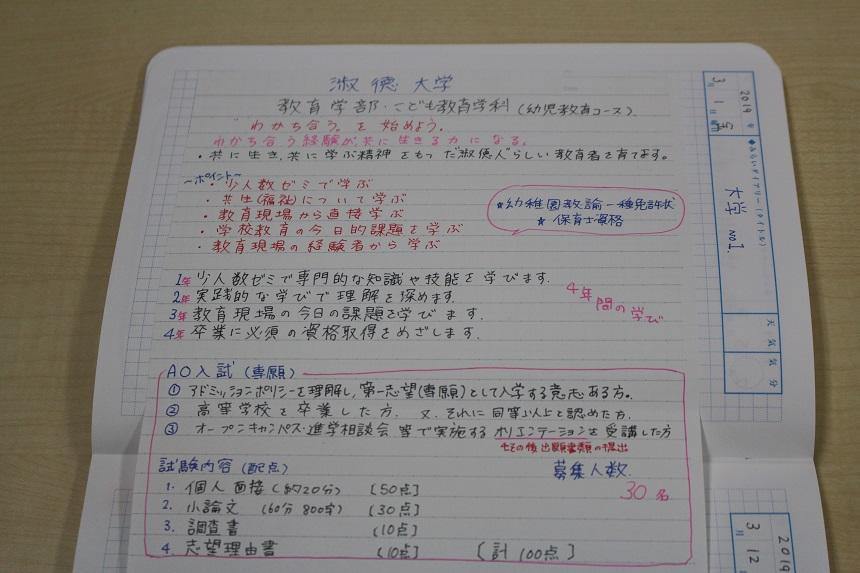 淑徳大学
教育学部・こども教育学科(幼児教育コース)
"わかち合う。を始めよう。
わかち合う経験が、共に生きる力になる。
・共に生き、共に学ぶ精神をもった"淑徳人"らしい教育者を育てます。
~ポイント~
・少人数ゼミで学ぶ
・共生(福祉)について学ぶ
・教育現場から直接学ぶ
・学校教育の今日的課題を学ぶ
・教育現場の経験者から学ぶ
★幼稚園教諭一種免許状
★保育士資格
1年 少人数ゼミで専門的な知識や技能を学びます。
2年 実践的な学びで理解を深めます。
3年 教育現場の今日の課題を学びます。
4年 卒業に必須の資格取得をめざします。
4年間の学び
AO入試(専願)
① アドミッションポリシーを理解し、第一志望(専願)として入学する意志ある方。
② 高等学校を卒業した方、又、それに同等以上と認めた方。
③ オープンキャンパス・進学相談会等で実施するオリエンテーションを受講した方
その後出願書類の提出
試験内容(配点)
募集人数
30名
1. 個人面接(約20分) [50点]
2. 小論文 (60分 800字) [30点]
3. 調査書 [10点]
4. 志望理由書 [10点] [計100点]
2019年
3月1日
◆みらいダイアリー(タイトル)
大学 No1.
天気 気分
2019
3月12